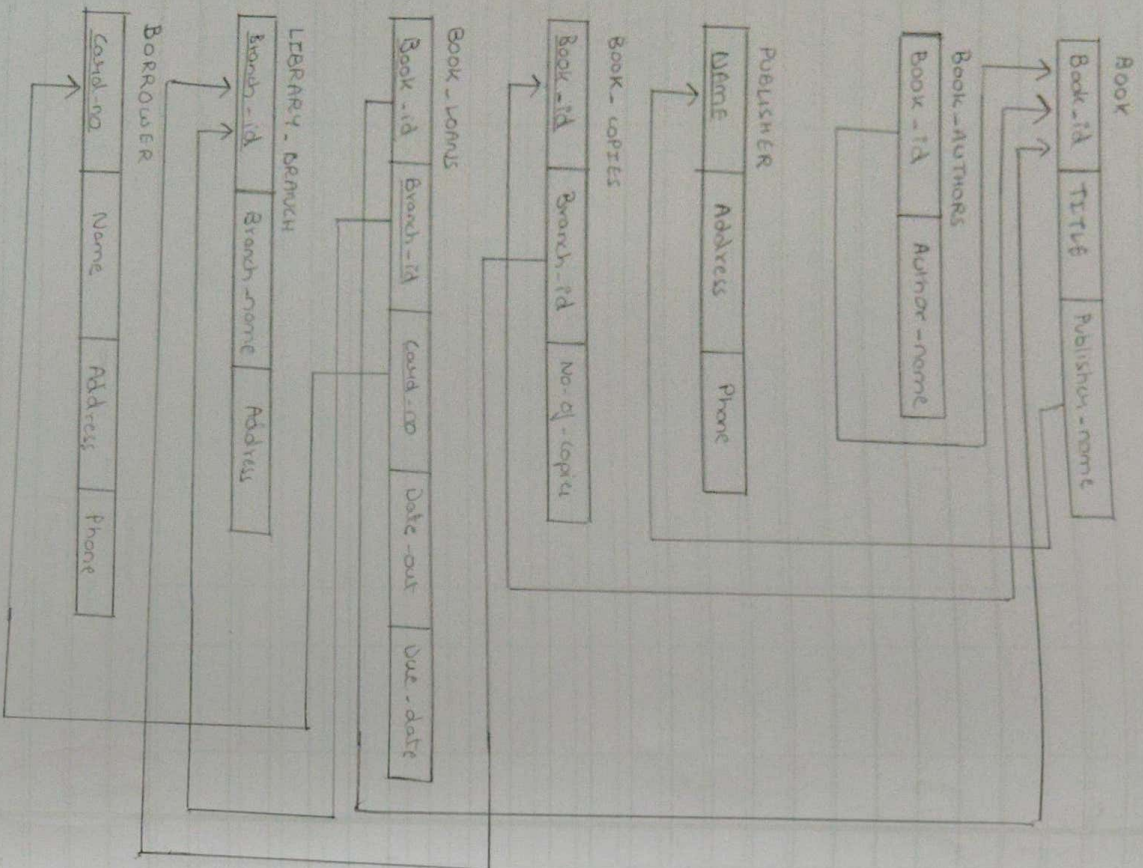 BOOK
Book_id TITLE Publisher-name
Book-AUTHORS
Book-id Author-name
PUBLISHER
NAME Address Phone
BOOK_COPIES
Book-id Branch-id No-of-copies
BOOK_LOANS
Book-id Branch-id Card-no Date-out Due-date
LIBRARY_BRANCH
Branch-id Branch-name Address
BORROWER
Card-no Name Address Phone